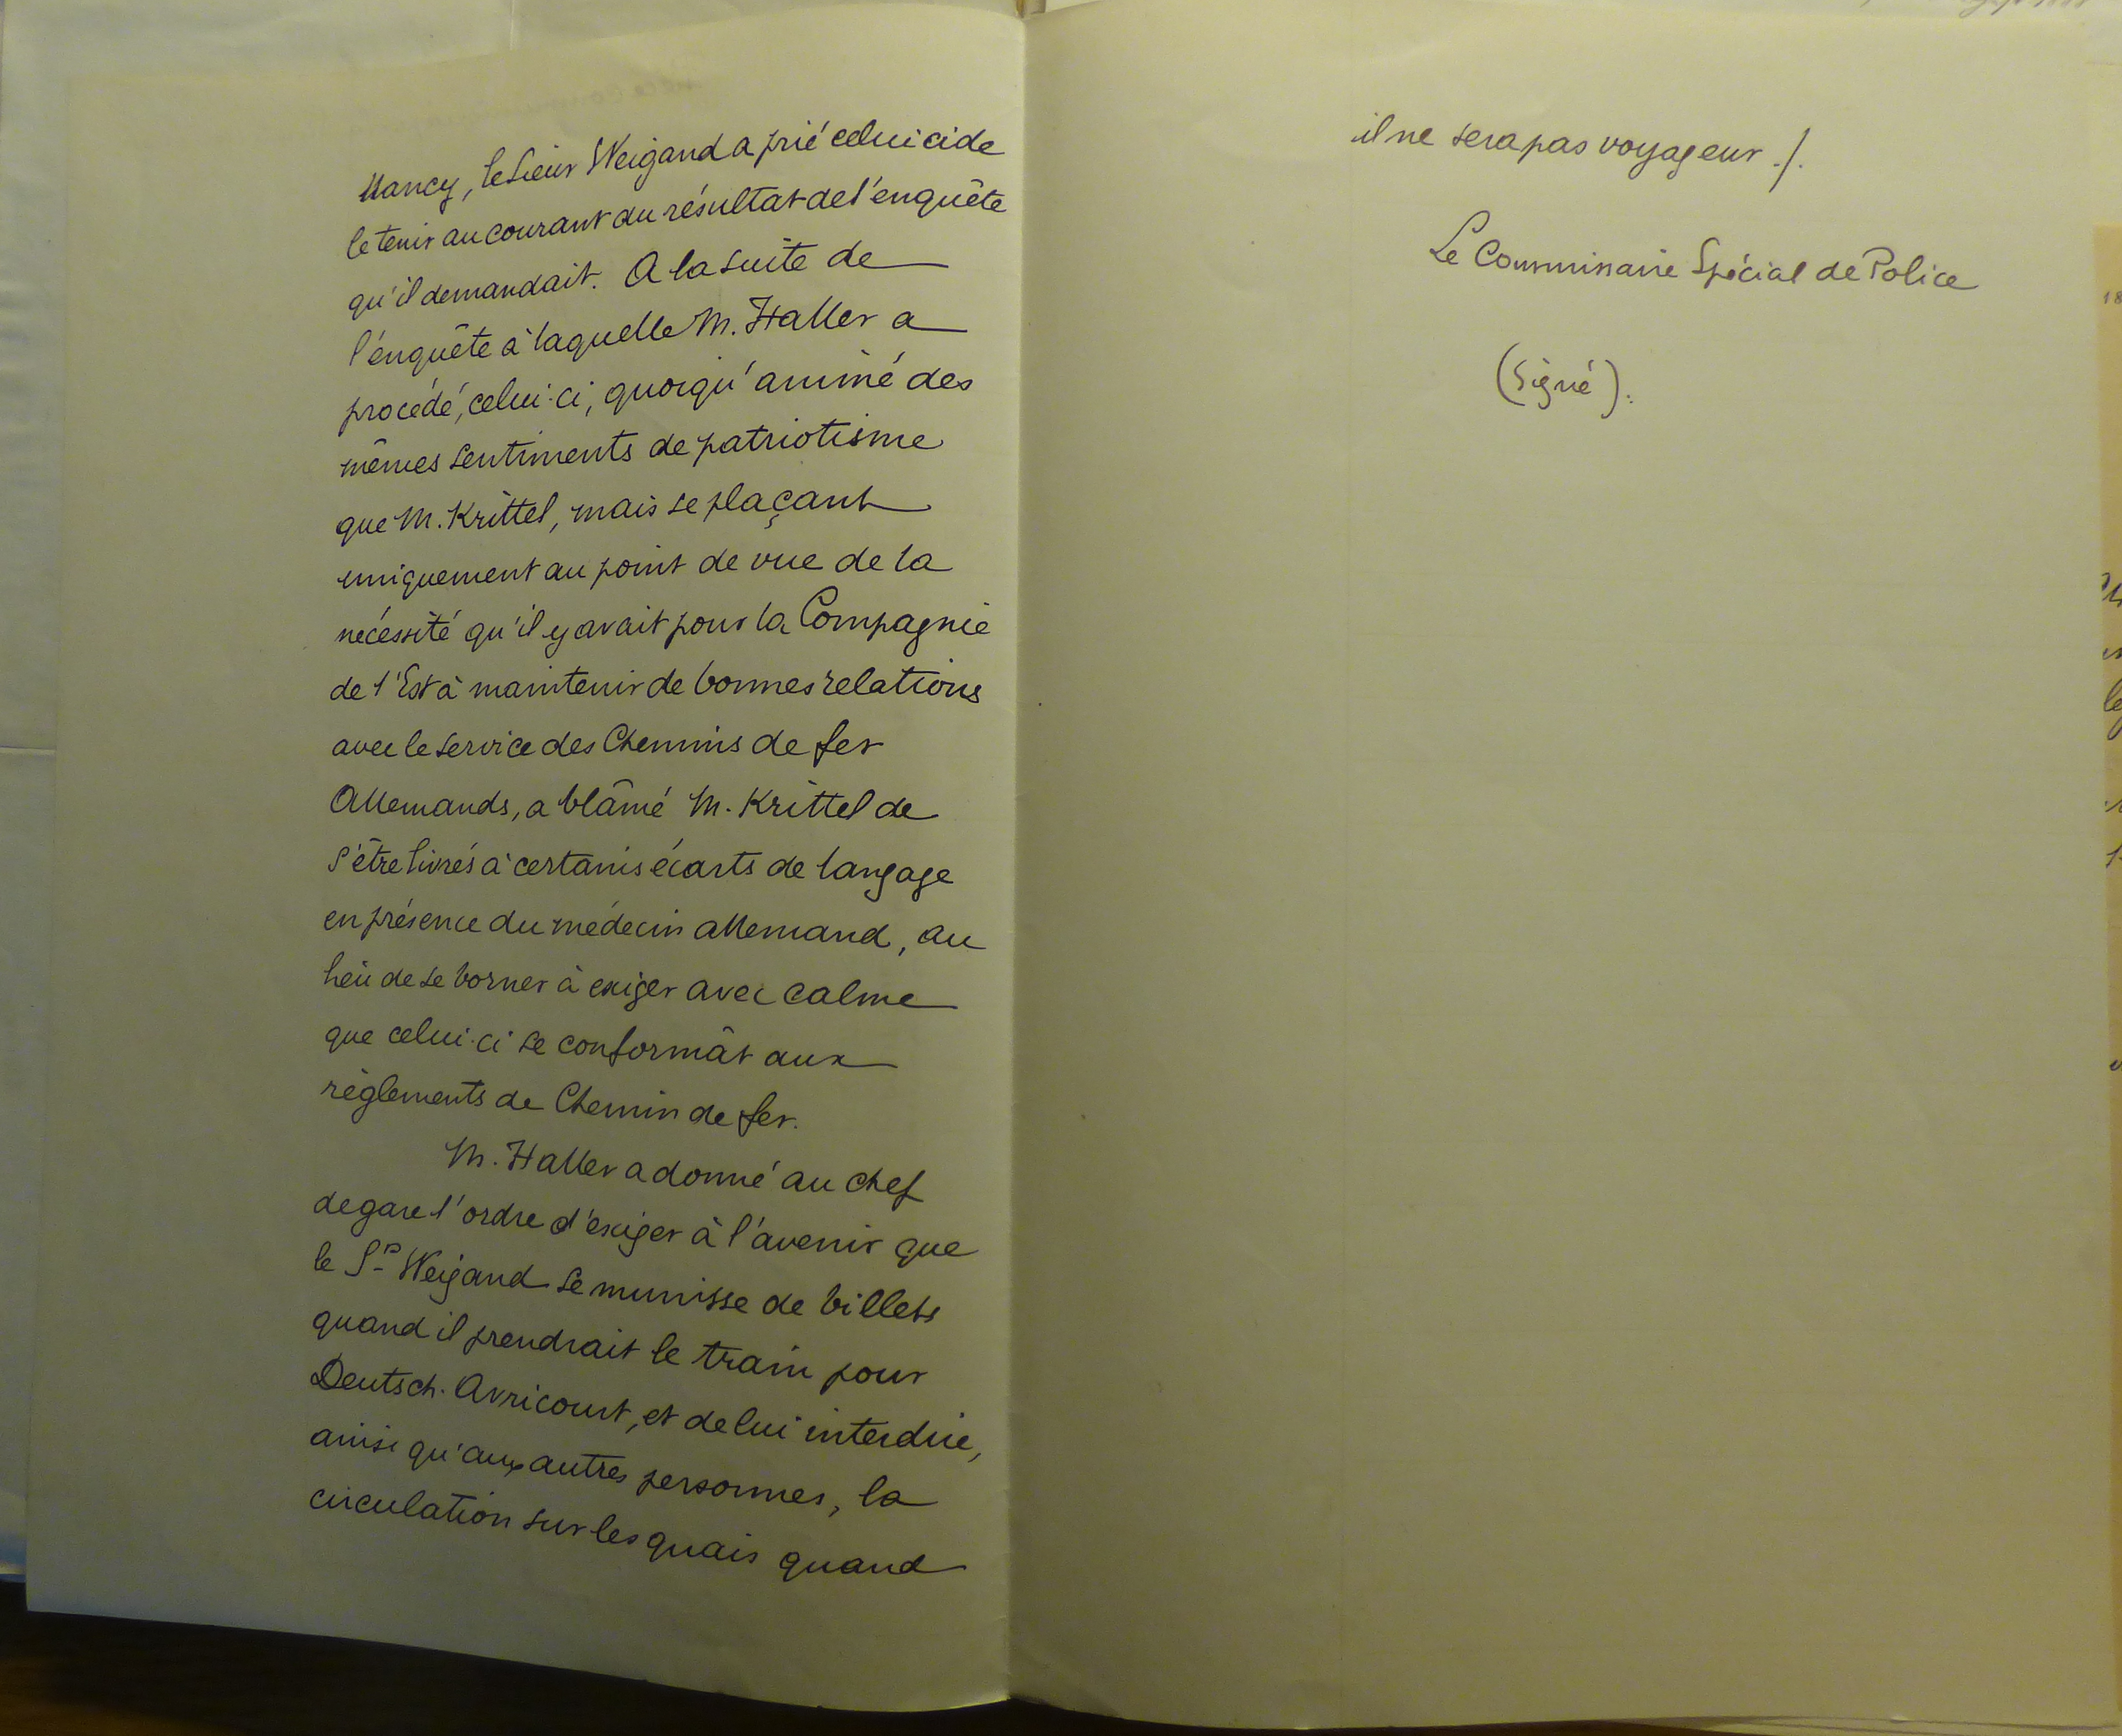 Nancy, le Sieur Weigand a prié celui ci de
le tenir au courant du résultat de l'enquête
qu'il demandait. A la suite de
l'enquête à laquelle M. Haller a
procédé, celui-ci, quoiqu'animé des
mêmes sentiments de patriotisme
que M. Krittel, mais se plaçant
uniquement au point de vue de la
nécessité qu'il y avait pour la Compagnie
de l'Est à maintenir de bonnes relations
avec le service des Chemins de fer
Allemands, a blâmé M. Krittel de
s'être livrés à certains écarts de langage
en présence du médecin allemand, au
lieu de se borner à exiger avec calme
que celui-ci se conformât aux
règlements de Chemin de fer.
M. Haller a donné au chef
de gare l'ordre d'exiger à l'avenir que
le Sr Weigand se munisse de billets
quand il prendrait le train pour
Deutsch-Avricourt, et de lui interdire,
ainsi qu'aux autres personnes, la
circulation sur les quais quand
il ne sera pas voyageur ./.
Le Commissaire Spécial de Police
(Signé).